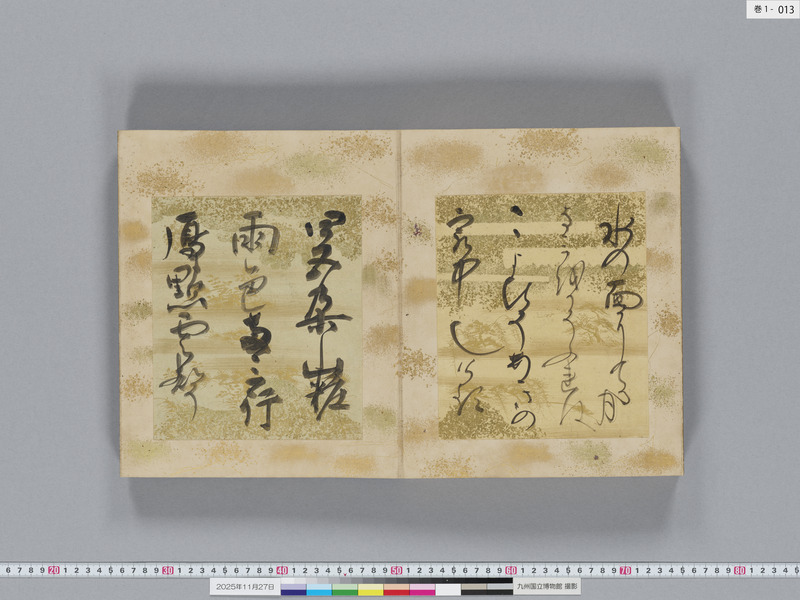 巻1 - 013
水の面にてる月
なみをかそふれは
こよひそあきの
最中なりける
四五朶山粧
雨色両三行
鴈點雲聲
2025年11月27日
九州国立博物館 撮影